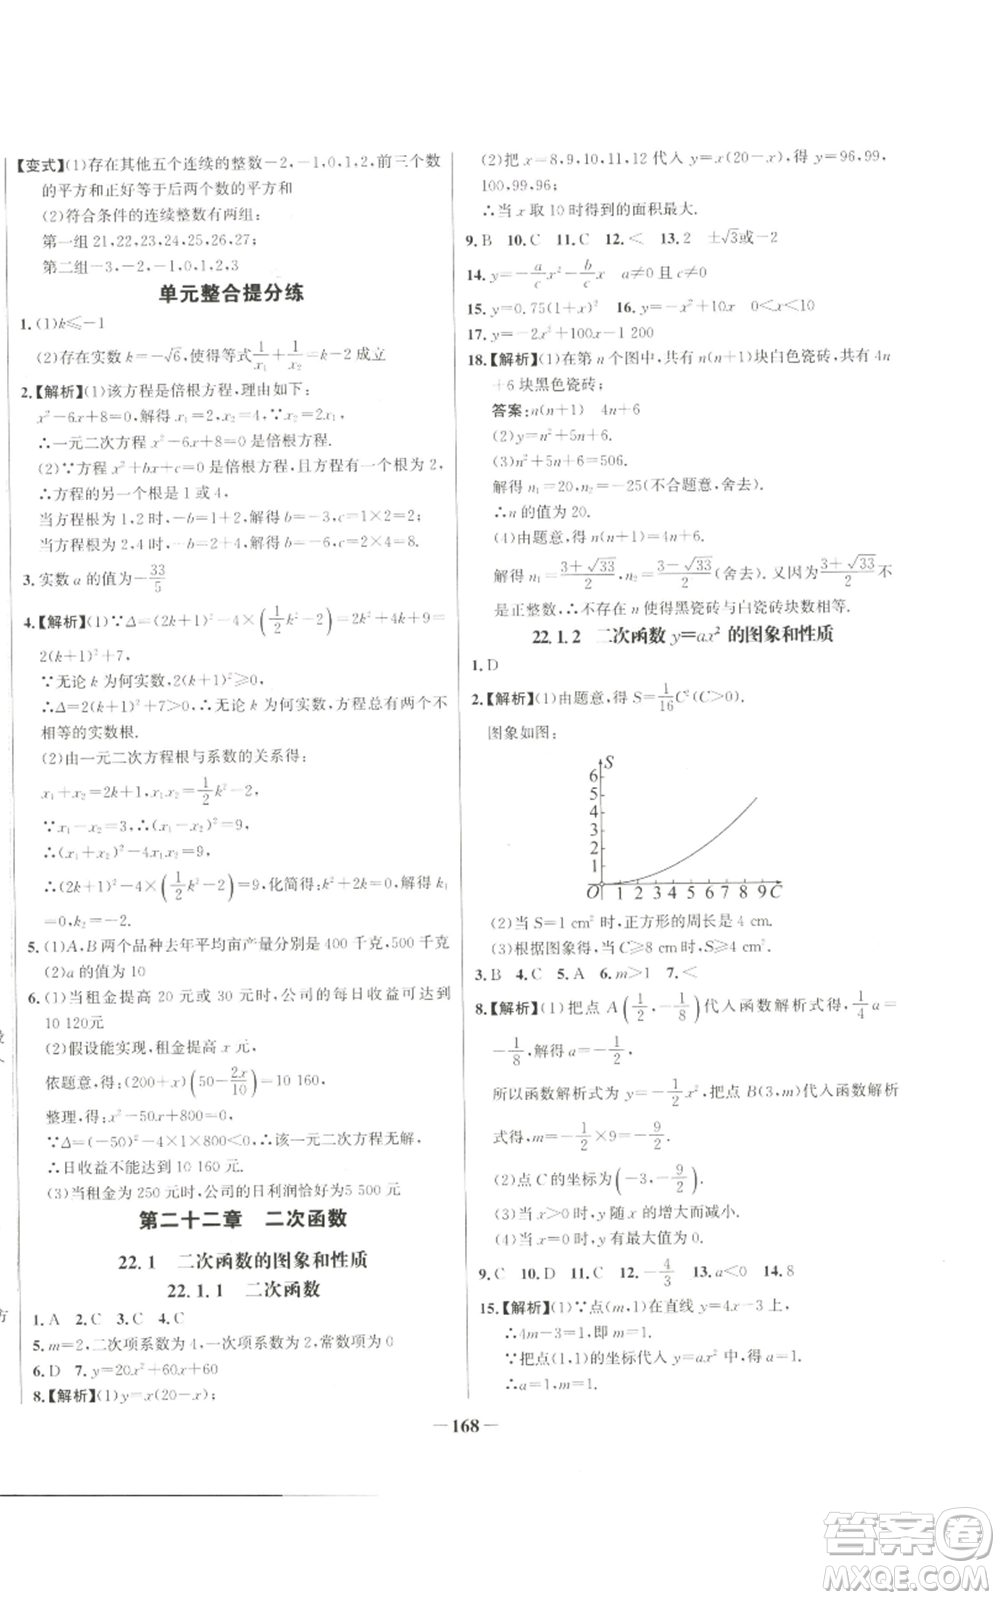 【变式】(1)存在其他五个连续的整数-2,-1,0,1,2,前三个数
的平方和正好等于后两个数的平方和
(2)符合条件的连续整数有两组:
第一组 21,22,23,24,25,26,27;
第二组-3,-2,-1,0,1,2,3
单元整合提分练
1. (1)k≤-1
(2)存在实数 k=-√6,使得等式 1/x₁+1/x₂=k-2 成立
2.【解析】(1)该方程是倍根方程,理由如下:
x²-6x+8=0,解得 x₁=2,x₂=4,∵x₂=2x₁,
∴一元二次方程 x²-6x+8=0 是倍根方程.
(2)∵方程 x²+bx+c=0 是倍根方程,且方程有一个根为 2,
∴方程的另一个根是 1 或 4,
当方程根为 1,2 时,-b=1+2,解得 b=-3,c=1×2=2;
当方程根为 2,4 时,-b=2+4,解得 b=-6,c=2×4=8.
3. 实数 a 的值为-33/5
4.【解析】(1)∵Δ=(2k+1)²-4×(1/2k²-2)=2k²+4k+9=
2(k+1)²+7,
∵无论 k 为何实数,2(k+1)²≥0,
∴Δ=2(k+1)²+7>0,∴无论 k 为何实数,方程总有两个不
相等的实数根.
(2)由一元二次方程根与系数的关系得:
x₁+x₂=2k+1,x₁x₂=1/2k²-2,
∵x₁-x₂=3,∴(x₁-x₂)²=9,
∴(x₁+x₂)²-4x₁x₂=9,
∴(2k+1)²-4×(1/2k²-2)=9,化简得:k²+2k=0,解得 k₁
=0,k₂=-2.
5. (1)A,B 两个品种去年平均亩产量分别是 400 千克,500 千克
(2)a 的值为 10
6. (1)当租金提高 20 元或 30 元时,公司的每日收益可达到
10 120元
(2)假设能实现,租金提高 x 元,
依题意,得:(200+x)(50-2x/10)=10 160,
整理,得:x²-50x+800=0,
∵Δ=(-50)²-4×1×800<0,∴该一元二次方程无解,
∴日收益不能达到 10 160 元.
(3)当租金为 250 元时,公司的日利润恰好为5 500 元
第二十二章 二次函数
22.1 二次函数的图象和性质
22.1.1 二次函数
1. A 2. C 3. C 4. C
5. m=2,二次项系数为 4,一次项系数为 2,常数项为 0
6. D 7. y=20x²+60x+60
8.【解析】(1)y=x(20-x);
(2)把 x=8,9,10,11,12 代入 y=x(20-x),得 y=96,99,
100,99,96;
∴当 x 取 10 时得到的面积最大.
9. B 10. C 11. C 12. < 13. 2 ±√3或-2
14. y=-a/c x²-b/c x a≠0 且 c≠0
15. y=0.75(1+x)² 16. y=-x²+10x 0<x<10
17. y=-2x²+100x-1 200
18.【解析】(1)在第 n 个图中,共有 n(n+1)块白色瓷砖,共有 4n
+6 块黑色瓷砖;
答案:n(n+1) 4n+6
(2)y=n²+5n+6.
(3)n²+5n+6=506.
解得 n₁=20,n₂=-25(不合题意,舍去).
∴n 的值为 20.
(4)由题意,得 n(n+1)=4n+6.
解得 n₁=3+√33/2,n₂=3-√33/2(舍去). 又因为3+√33/2不
是正整数,∴不存在 n 使得黑瓷砖与白瓷砖块数相等.
22.1.2 二次函数 y=ax² 的图象和性质
1. D
2.【解析】(1)由题意,得 S=1/16C²(C>0).
图象如图:
S
6
5
4
3
2
1
O 1 2 3 4 5 6 7 8 9 C
(2)当 S=1 cm² 时,正方形的周长是 4 cm.
(3)根据图象得,当 C≥8 cm 时,S≥4 cm².
3. B 4. C 5. A 6. m>1 7. <
8.【解析】(1)把点 A(1/2,-1/8)代入函数解析式得,1/4a=
-1/8,解得 a=-1/2,
所以函数解析式为 y=-1/2x²,把点 B(3,m)代入函数解析
式得,m=-1/2×9=-9/2.
(2)点 C 的坐标为(-3,-9/2).
(3)当 x>0 时,y 随 x 的增大而减小.
(4)当 x=0 时,y 有最大值是 0.
9. C 10. D 11. C 12. -4/3 13. a<0 14. 8
15.【解析】(1)∵点(m,1)在直线 y=4x-3 上,
∴4m-3=1,即 m=1.
∵把点(1,1)的坐标代入 y=ax²,得 a=1.
∴a=1,m=1.
— 168 —
方
答案卷
MXQE.COM